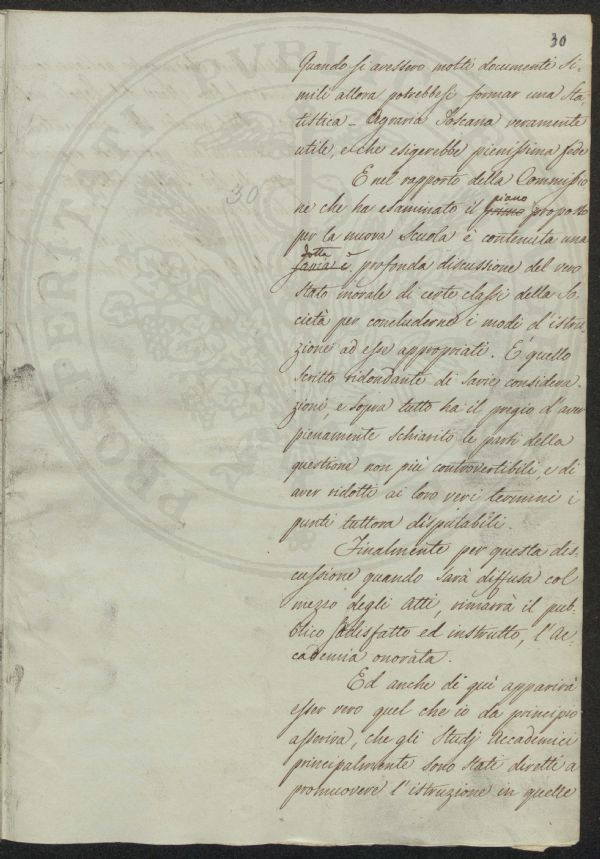 30
Quando si avessero molti documenti Si-
mili allora potrebbesi formar una Sta-
tistica - Agraria Toscana veramente
utile, e che esigerebbe pienissima fede
E nel rapporto della Commissio
ne che ha esaminato il primo piano proposto
per la nuova Scuola è contenuta una
dotta e profonda discussione del vero
Stato morale di certe classi della So-
cietà per concluderne i modi d'istru-
zione ad esse appropriati. E' quello
Scritto ridondante di savie considera-
zioni, e sopra tutto ha il pregio d'aver
pienamente schiarito le parti della
questione non più controvertibili, e di
aver ridotti ai loro veri termini i
punti tuttora disputabili.
Finalmente per questa dis-
cussione quando sarà diffusa col
mezzo degli Atti, rimarrà il pub-
blico Sodisfatto ed instrutto, l'Ac-
cademia onorata.
Ed anche di quì apparirà
esser vero quel che io da principio
asseriva, che gli Studj Accademici
principalmente sono stati diretti a
promuovere l'istruzione in quelle
30
PROSPERITATI PUBLI